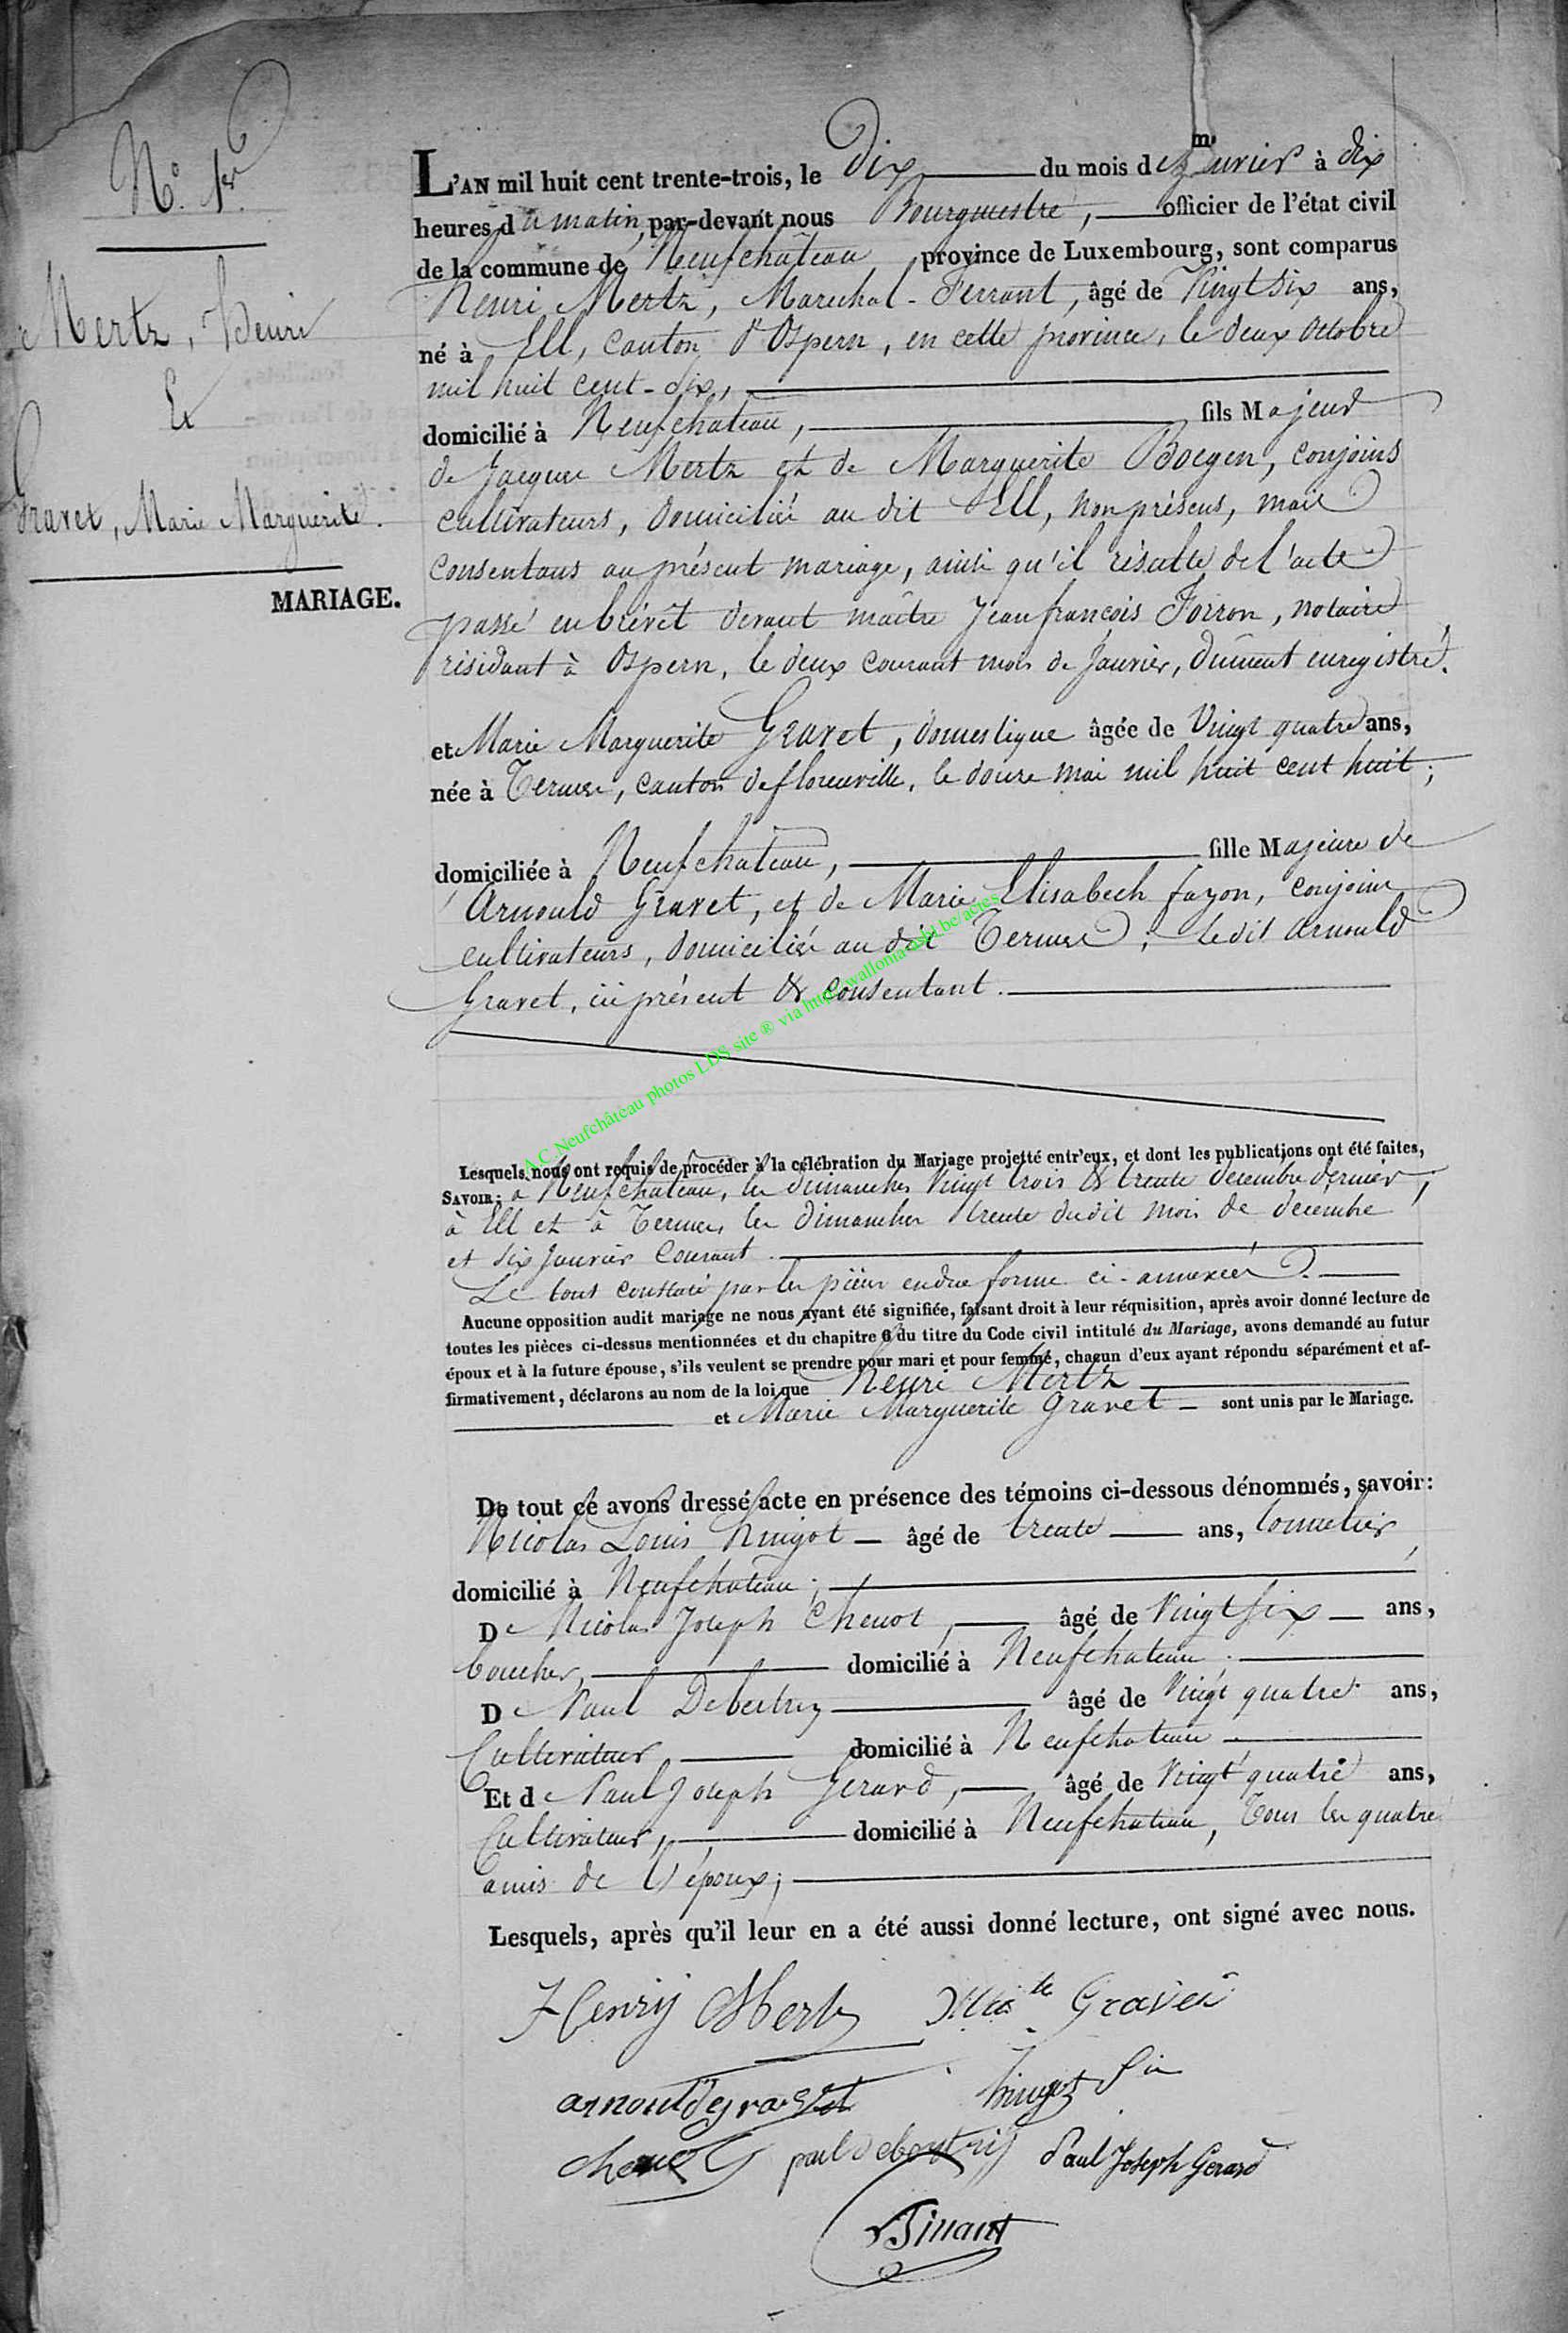 N° 1er
Mertz, Henri
Et
Gravet, Marie Marguerite.
MARIAGE.
L'AN mil huit cent trente-trois, le Dix du mois de Janvier à dix
heures du matin, par-devant nous Bourguestre, officier de l'état civil
de la commune de Neufchâteau province de Luxembourg, sont comparus
Henri Mertz, Marechal-Ferrant, âgé de Vingt Six ans,
né à Ell, canton d'Ospern, en cette province, le deux Octobre
mil huit cent-six,
domicilié à Neufchateau, fils Majeur
de Jacques Mertz et de Marguerite Boegen, conjoins
cultivateurs, domiciliés au dit Ell, non présens, mais
consentans au présent mariage, ainsi qu'il résulte de l'acte
passé en brévêt devant maître Jean françois Forron, notaire
résidant à Ospern, le deux courant mois de Janvier, dûment enregistré.
et Marie Marguerite Gravet, domestique âgée de Vingt quatre ans,
née à Termes, canton de florenville, le douze mai mil huit cent huit;
domiciliée à Neufchateau, fille Majeure de
Arnould Gravet, et de Marie Elisabeth fazon, conjoins
cultivateurs, domiciliés au dit Termes; le dit Arnould
Gravet, ici présent & consentant.
A.C.Neufchâteau photos LDS site ® via http://wallonia-asbl.be/actes
Lesquels nous ont requis de procéder à la célébration du Mariage projetté entr'eux, et dont les publications ont été faites,
SAVOIR: à Neufchateau, les dimanches Vingt trois & trente decembre dernier,
à Ell et à Termes, les Dimanches trente dudit mois de decembre
et six Janvier Courant.
Le tout constaté par les pièces en due forme ci-annexées.
Aucune opposition audit mariage ne nous ayant été signifiée, faisant droit à leur réquisition, après avoir donné lecture de
toutes les pièces ci-dessus mentionnées et du chapitre 6 du titre du Code civil intitulé du Mariage, avons demandé au futur
époux et à la future épouse, s'ils veulent se prendre pour mari et pour femme, chacun d'eux ayant répondu séparément et af-
firmativement, déclarons au nom de la loi que Henri Mertz
et Marie Marguerite Gravet sont unis par le Mariage.
De tout ce avons dressé acte en présence des témoins ci-dessous dénommés, savoir:
Nicolas Louis hingot âgé de trente ans, tonnelier,
domicilié à Neufchateau;
De Nicolas Joseph Chenot, âgé de Vingt Six ans,
boucher, domicilié à Neufchateau.
De Paul Debertry âgé de Vingt quatre ans,
Cultivateur, domicilié à Neufchateau
Et de Paul Joseph Gerard, âgé de Vingt quatre ans,
Cultivateur, domicilié à Neufchateau, Tous les quatre
amis de l'époux;
Lesquels, après qu'il leur en a été aussi donné lecture, ont signé avec nous.
Henrij Mertz Mte Gravet
arnould gravet hingot
chenot paul debertrij Paul Joseph Gerard